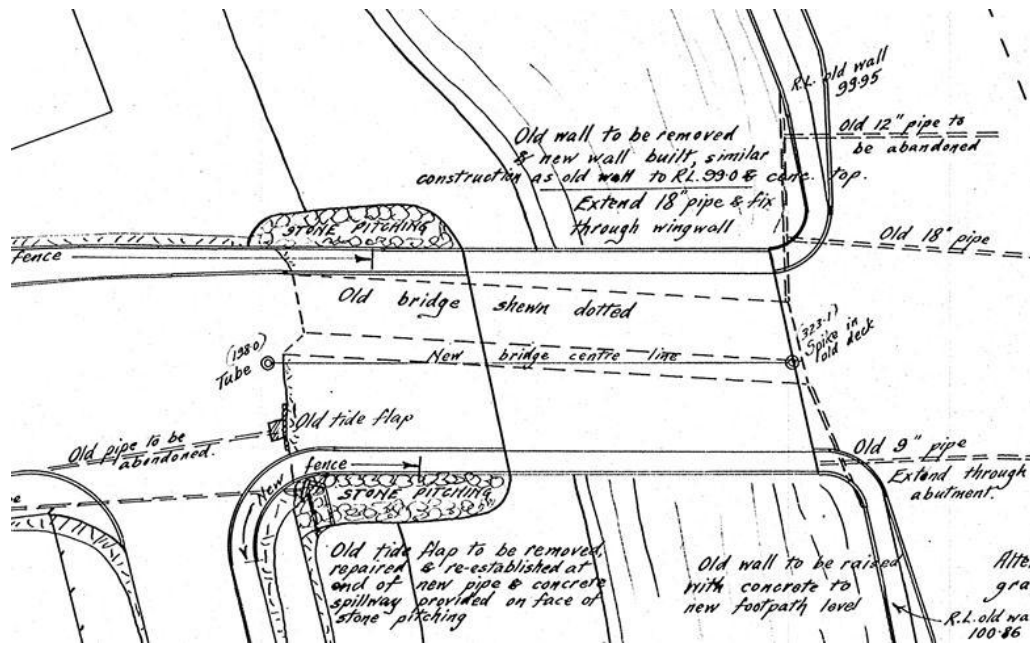 R.L. old wall
99.95
Old 12" pipe to
be abandoned
Old wall to be removed
& new wall built, similar
construction as old wall to RL.99.0 & conc. top.
Extend 18" pipe & fix
through wingwall
Old 18" pipe
STONE PITCHING
fence
Old bridge shewn dotted
(198.0)
Tube
New bridge centre line
(323.1)
Spike in
old deck
Old tide flap
Old pipe to be
abandoned.
New fence
STONE PITCHING
Old 9" pipe
Extend through
abutment.
Old tide flap to be removed,
repaired & re-established at
end of new pipe & concrete
spillway provided on face of
stone pitching
Old wall to be raised
with concrete to
new footpath level
R.L. old wa
100.86